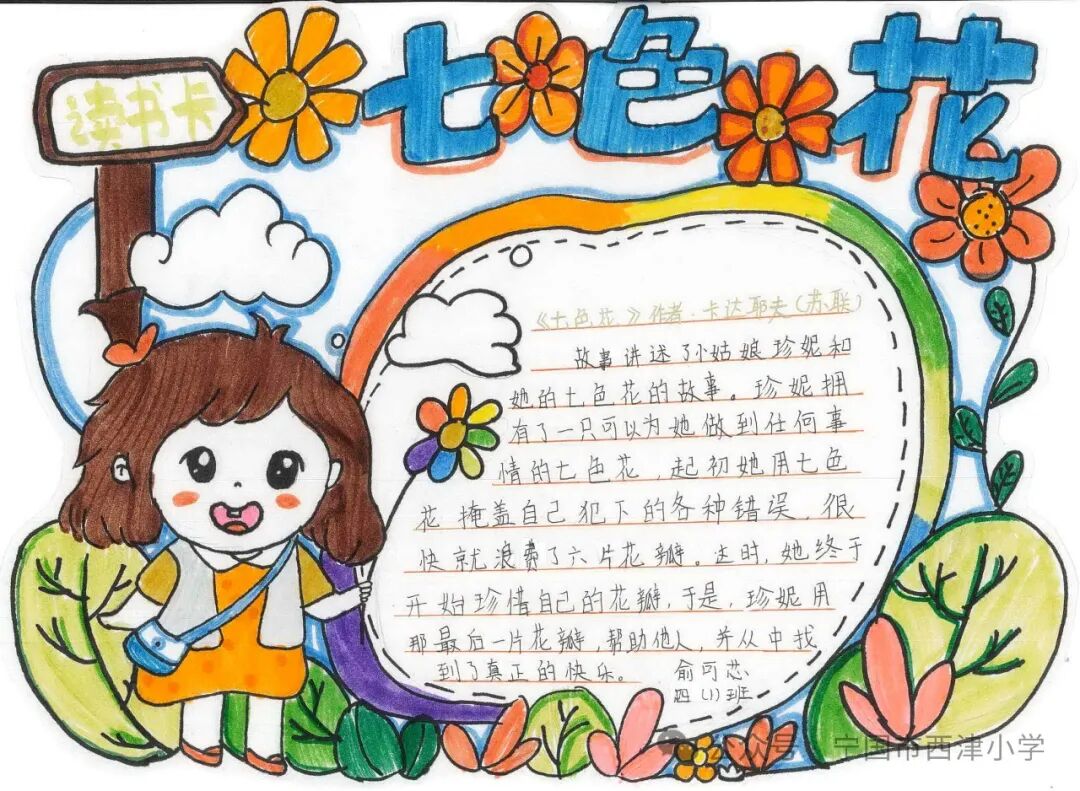 读书卡
七色花
《七色花》作者·卡达耶夫(苏联)
故事讲述了小姑娘珍妮和
她的七色花的故事。珍妮拥
有了一只可以为她做到任何事
情的七色花，起初她用七色
花掩盖自己犯下的各种错误，很
快就浪费了六片花瓣。这时，她终于
开始珍惜自己的花瓣，于是，珍妮用
那最后一片花瓣，帮助他人，并从中找
到了真正的快乐。
俞可芯
四(1)班
公众号 宁国市西津小学